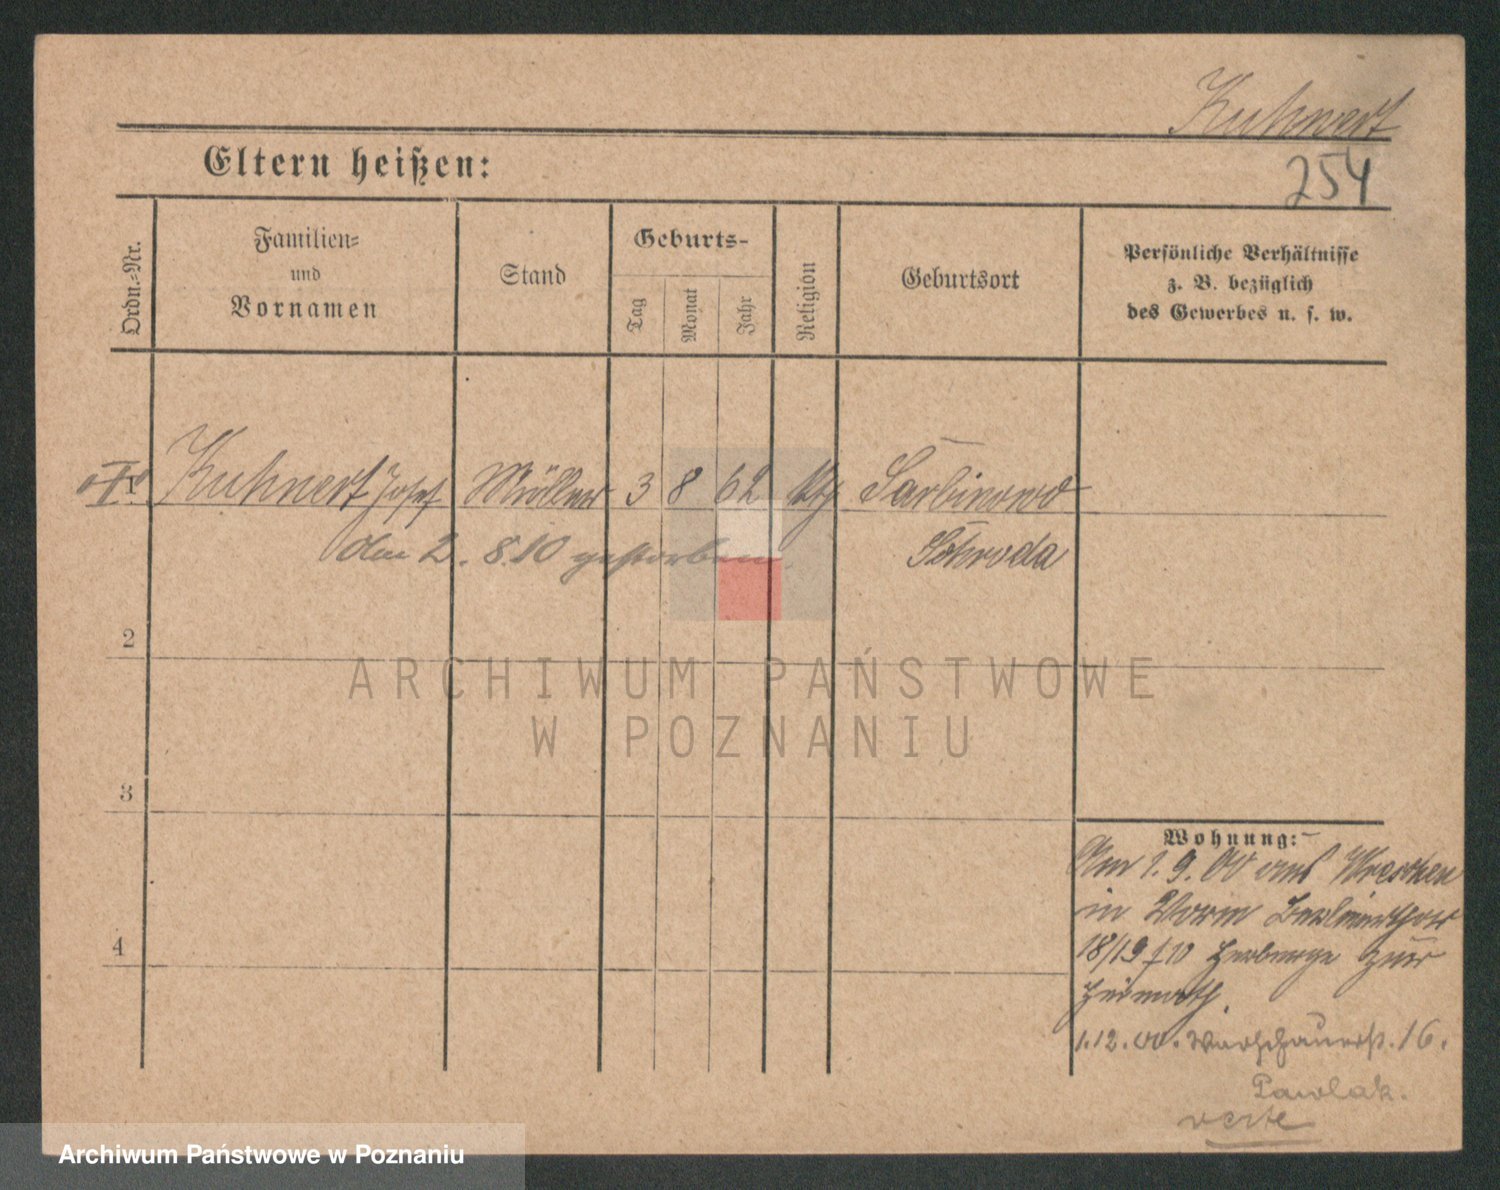 Kuhnert
Eltern heißen:
254
Ordn.-Nr.
Familien-
und
Vornamen
Stand
Geburts-
Tag
Monat
Jahr
Religion
Geburtsort
Persönliche Verhältnisse
z. B. bezüglich
des Gewerbes u. s. w.
1 Kuhnert Josef Müller 3 8 62 kth Sarbinowo
Am 2. 8.10 gestorben. Schroda
2
ARCHIWUM PAŃSTWOWE
W POZNANIU
3
Wohnung:
Am 1. 9. 00 aus Wreschen
in Berlinerthor
4
18/19 Herberge zur
Heimath.
1.12.00. Warschauerst. 16.
Pawlak.
verte
Archiwum Państwowe w Poznaniu